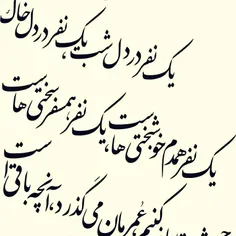 یک نفر در دل شب، یک نفر در دل خاک
یک نفر همدم خوشبختی هاست، یک نفر همسفر سختی هاست
کنیم، عُمرمان می گذرد، آنچه باقی است